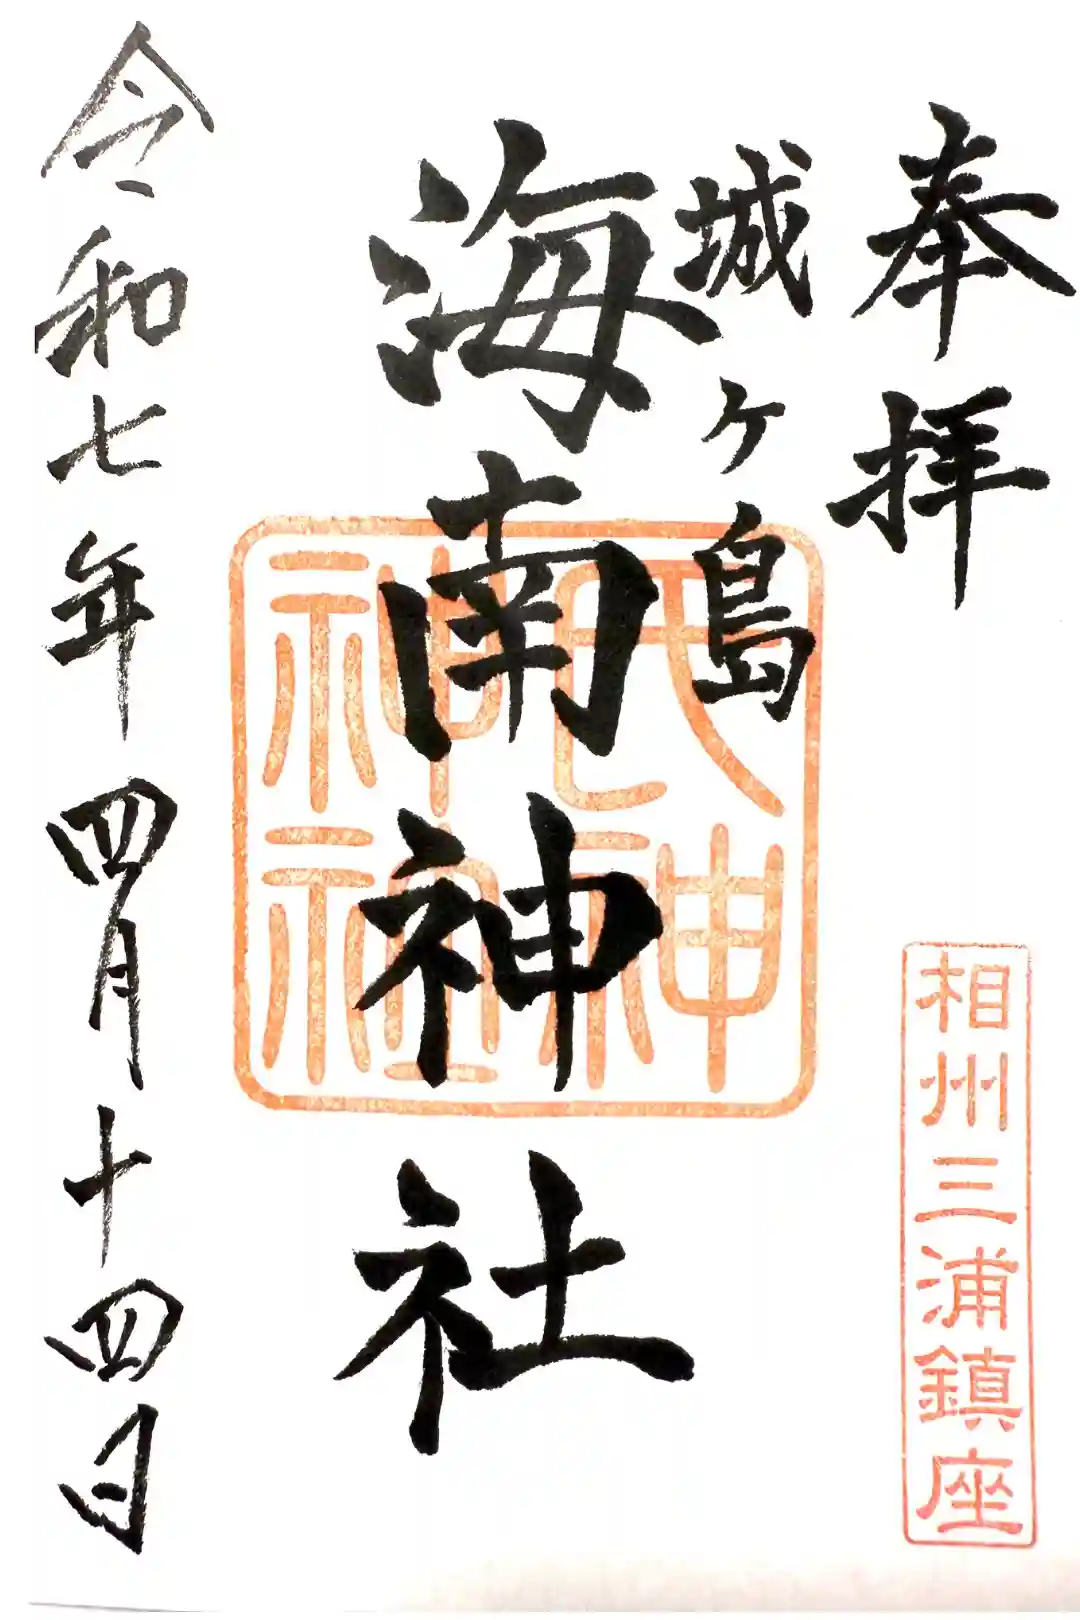 奉拝
相州三浦鎮座
城ヶ島
海南神社
氏神
神社
令和七年四月十四日